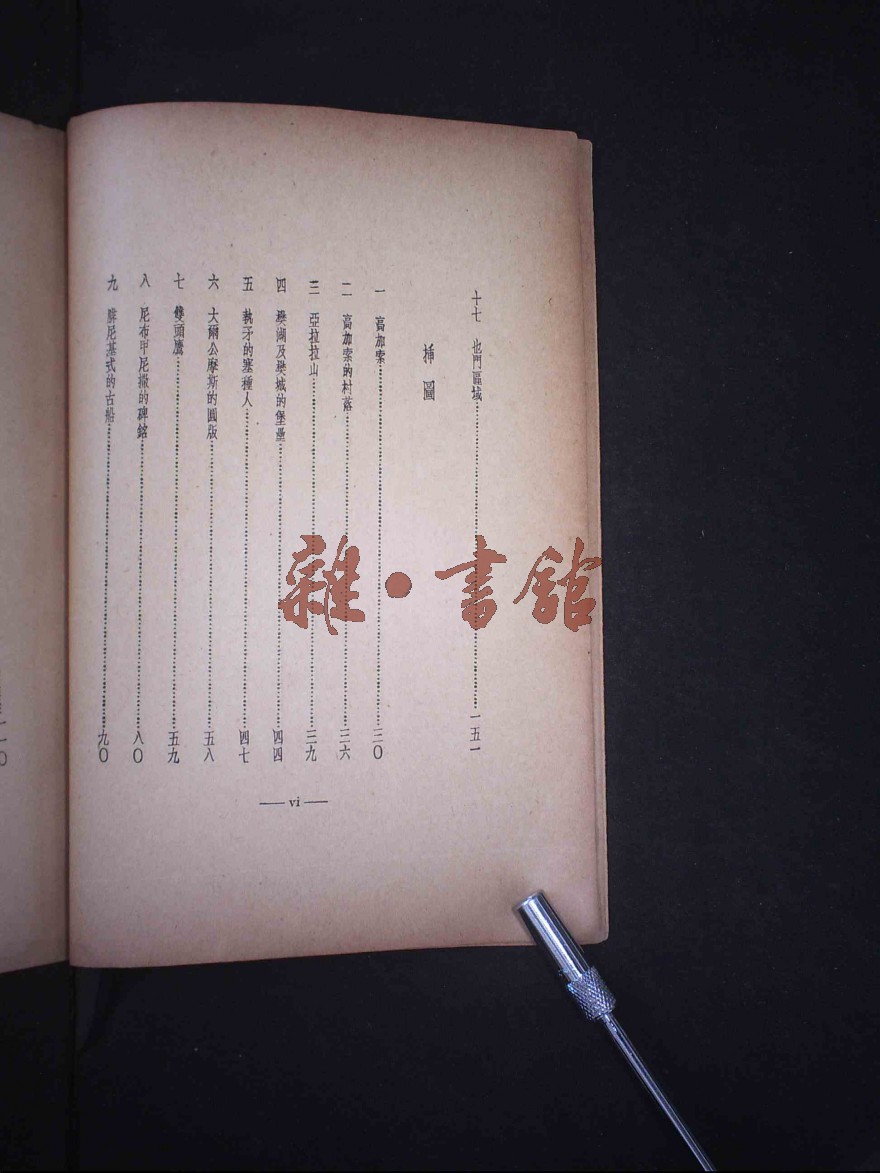 十七 也門區域……一五一
插圖
一 高加索……三〇
二 高加索的村落……三六
三 亞拉拉山……三九
四 樊湖及樊城的堡壘……四四
五 執矛的塞種人……四七
六 大爾公摩斯的圓版……五八
七 雙頭鷹……五九
八 尼布甲尼撒的碑銘……八〇
九 腓尼基式的古船……九〇
— vi —
雜·書館